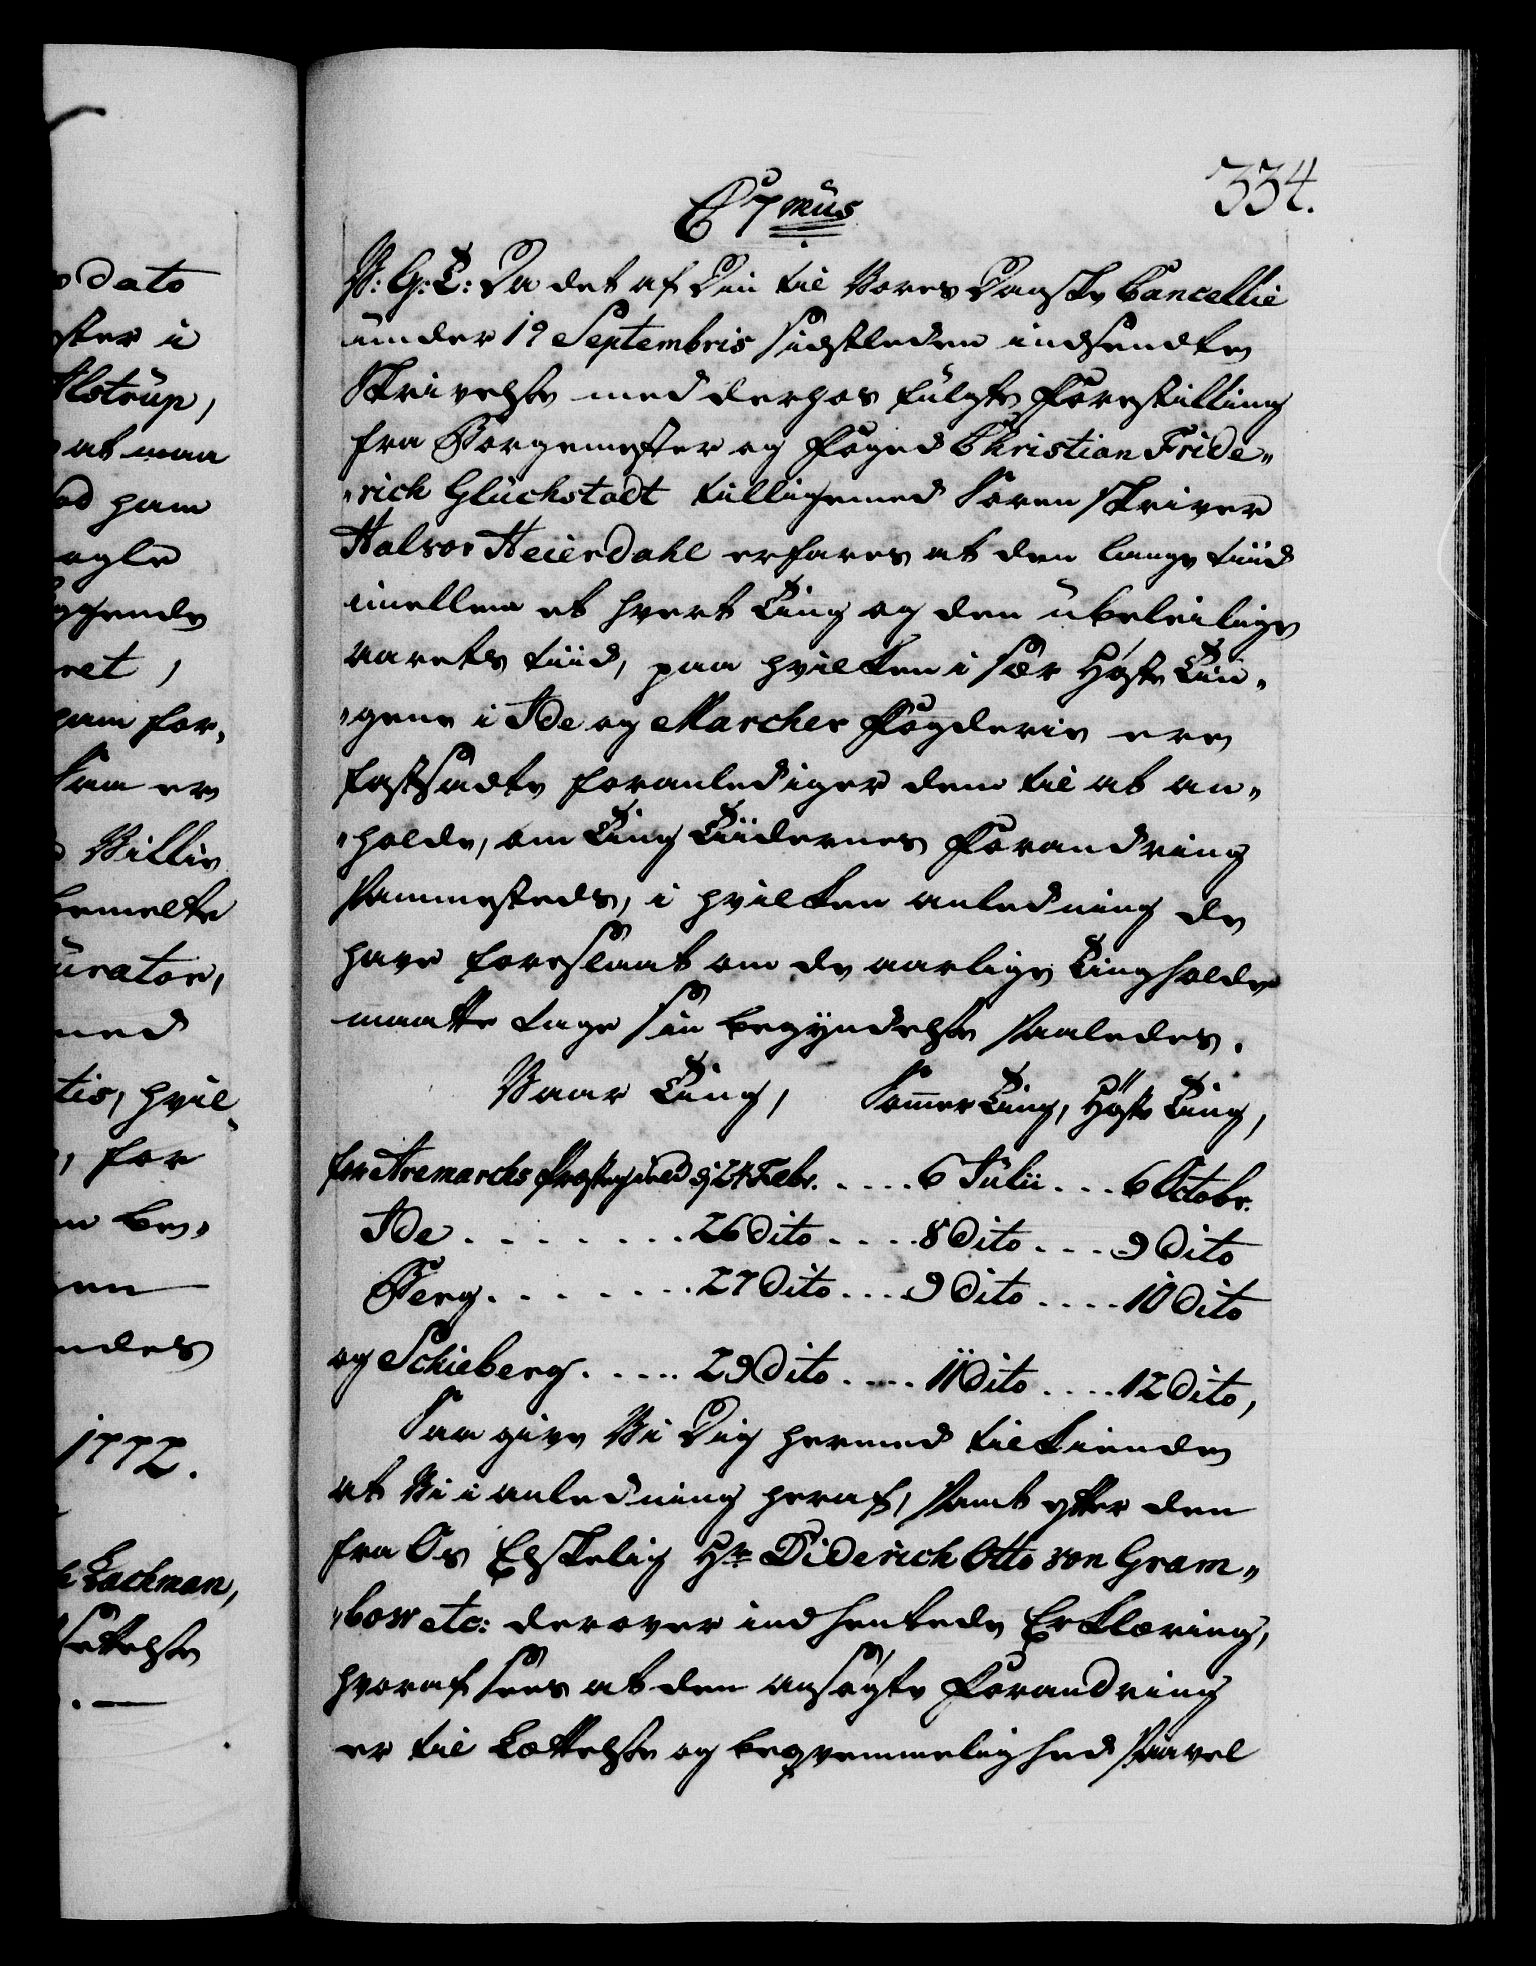 334.
C 7mus
V: G: T: Da det af Din til Vores Danske Cancellie
under 19 Septembris sidstleden indsendte
Skrivelse med derhos fulgte Forestilling
fra Borgemester og Foged Christian Fride„
„rich Glückstadt tilligemed Sorenskriver
Halvor Heierdahl erfares at den lange tiid
imellem et hvert Ting og den ubeleilige
aarets tiid, paa hvilken i sær Høste Tin„
„gene i Ide og Marcher Fogderie ere
fastsadte foranlediger dem til at an„
„holde, om Ting Tiidernes Forandring
sammesteds, i hvilken anledning de
have foreslaaet om de aarlige Tingholde
maatte tage sin begyndelse saaledes.
Vaar Ting, Sommer Ting, Høste Ting,
for Aremarchs Præstegield d: 24 Febr. .... 6 Julii ... 6 Octobr.
Ide ........ 26 Dito .... 8 Dito ... 9 Dito
Berg ........ 27 Dito .... 9 Dito .... 10 Dito
og Schieberg ..... 29 Dito .... 11 Dito .... 12 Dito,
Saa give Vi Dig hermed tilkiende
at Vi i anledning heraf, samt efter den
fra Os Elskelig Hr. Diderich Otto von Gram„
„bow etc: derover indhentede Erklæring,
hvoraf sees at den ansøgte Forandring
er til Lættelse og beqvemmelighed saavel
dato
ster i
Alstrup,
at maa
ham
ogle
ret,
ham for„
Saa er
Villie
bemelte
urator,
med
tis, hvil„
, for
be„
1772.
Lachman,